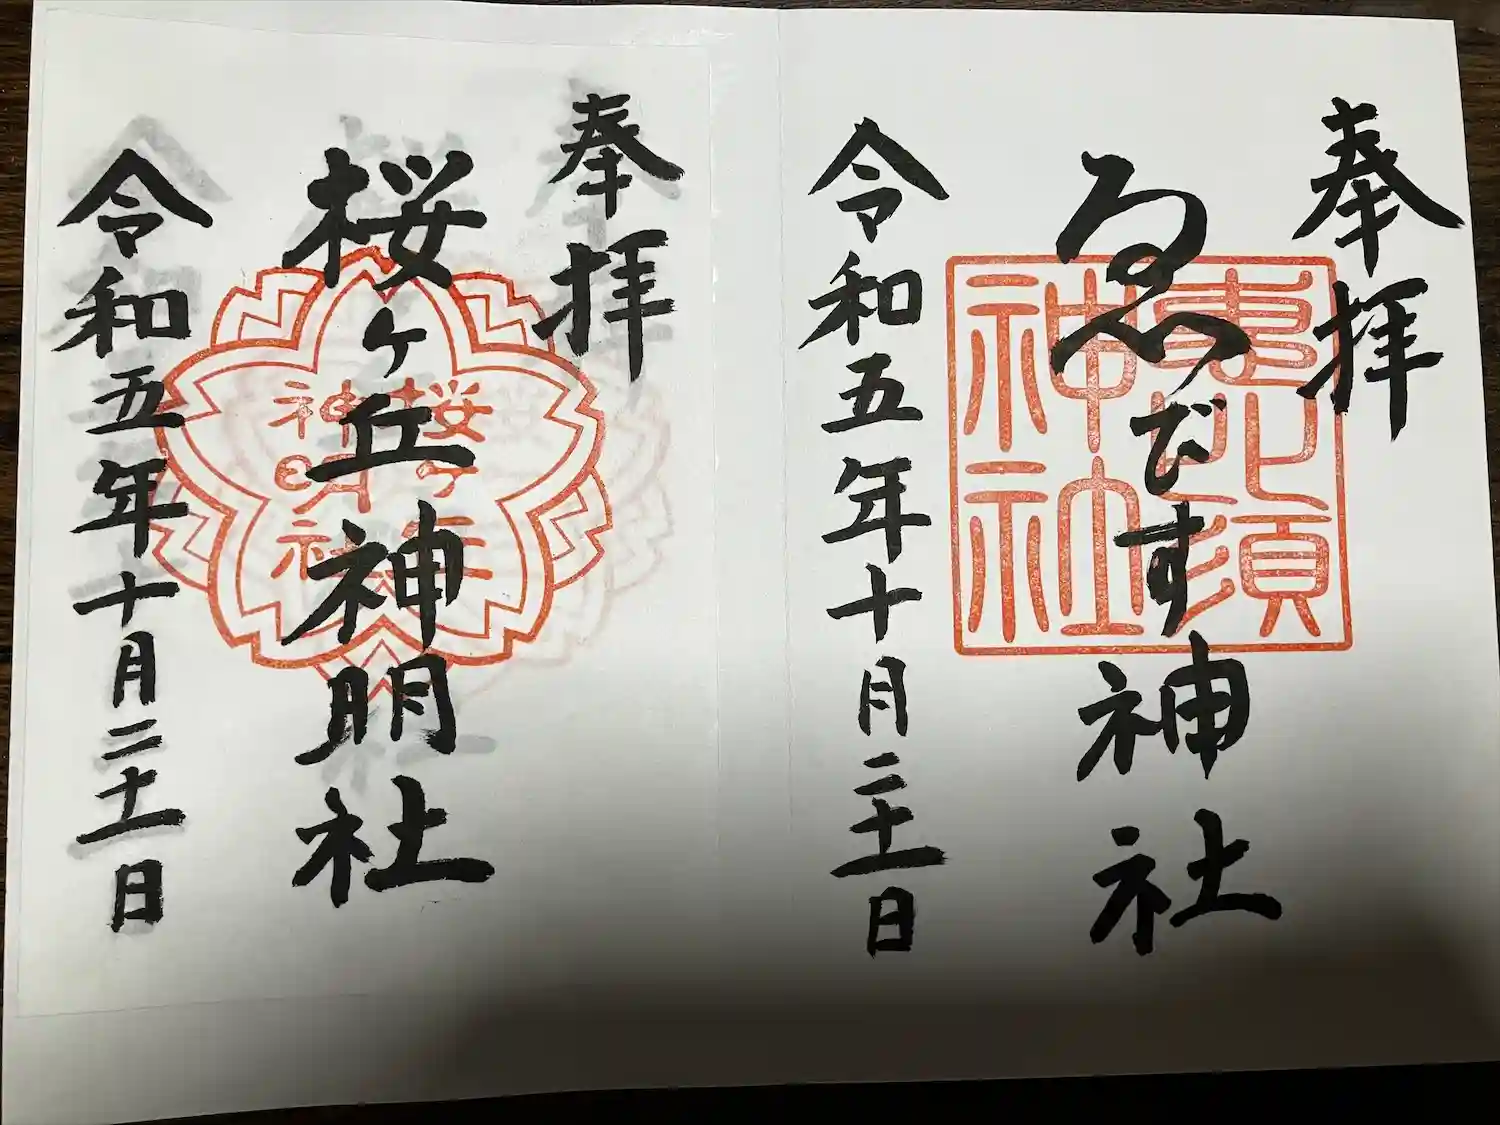 奉拝
ゑびす神社
恵比須
神社
令和五年十月二十一日
奉拝
桜ヶ丘神明社
桜ヶ丘
神明社
令和五年十月二十一日